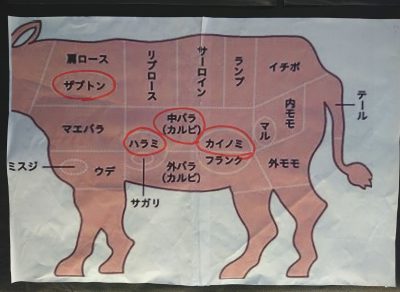 肩ロース
ザブトン
リブロース
サーロイン
ランプ
イチボ
テール
マエバラ
中バラ
(カルビ)
ハラミ
カイノミ
フランク
マル
内モモ
外モモ
ミスジ
ウデ
外バラ
(カルビ)
サガリ